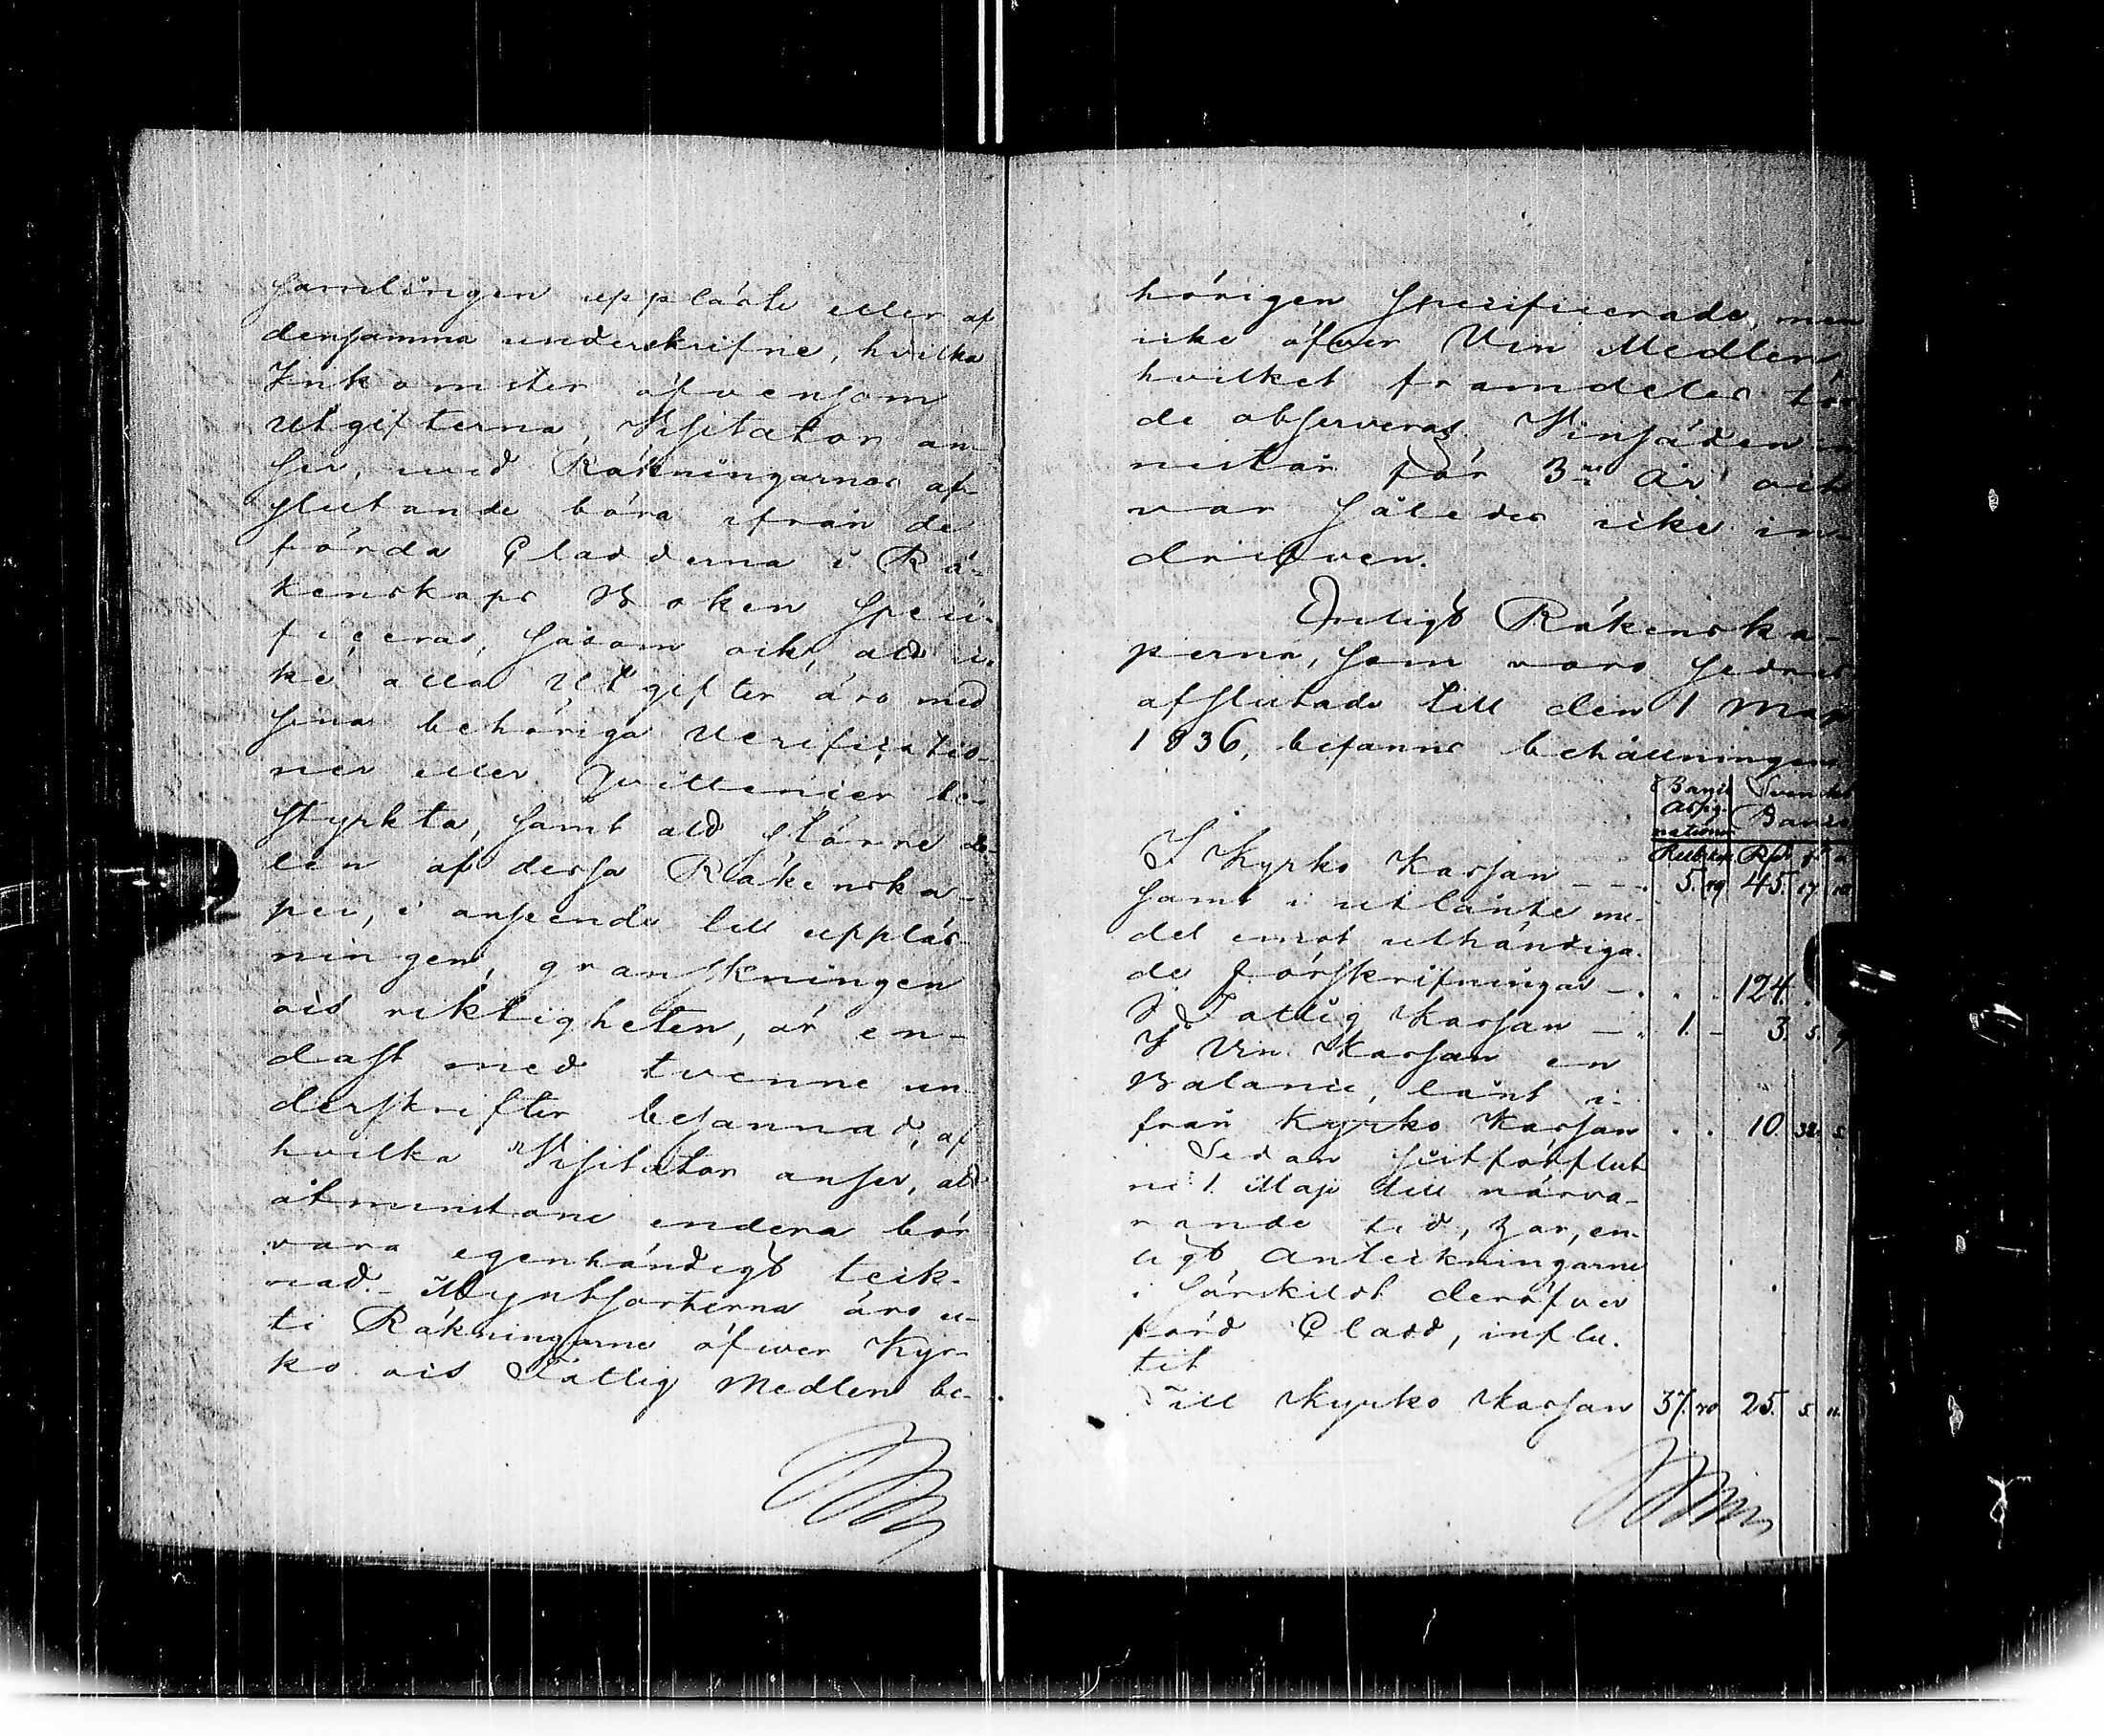 samlingen upplåste eller af
densamma underskrifne, hvilka
Inkomster äfvensom
Utgifterna, Visitator an-
ser, med Räkningarnas af-
slutande böra ifrån de
förda Cladderna i Rä-
kenskaps Boken speci-
ficeras, såsom ock, att ic-
ke alla Utgifter äro med
sina behöriga Verificatio-
ner eller Qvittencier be-
styrkta, samt att större de-
len af dessa Räkenska-
per, i anseende till uppläs-
ningen, granskningen
och riktigheten, är en-
dast med tvenne un-
derskrifter besannad, af
hvilka Visitator anser, att
åtminstone endera bör
vara egenhändigt teck-
nad. Myntsorterna äro u-
ti Räkningarne öfwer Kyr-
ko och Fattig Medlen be-
hörigen specificerade, men
icke öfwer Vin Medlen,
hvilket framdeles tör-
de observeras. Vinsäden in-
nestår för 3ne År och
var således icke in-
drifven.
Enligt Räkenska-
perna, som voro sednast
afslutade till den 1 Maji
1836, befanns behållningen
Banco Assig- nationer Svenskt Banco
Rub. kop. Rdr sk. r
I Kyrko Kassan --- 5. 19 45. 17 10
samt i utlånte me-
del emot uthändiga-
de Förskrifningar - . . . 124. .
I Fattig Kassan - . 1. - 3. 5. 7
I Vin Kassan en
Balance, lånt i-
från Kyrko Kassan . . 10. 32. 5.
Sedan sistförflut-
ne 1. Maji till närva-
rande tid, har, en-
ligt Anteckningarne
i särskildt deröfver
förd Cladd, influ-
tit
Till Kyrko Kassan 37. 70 25. 5. 11.